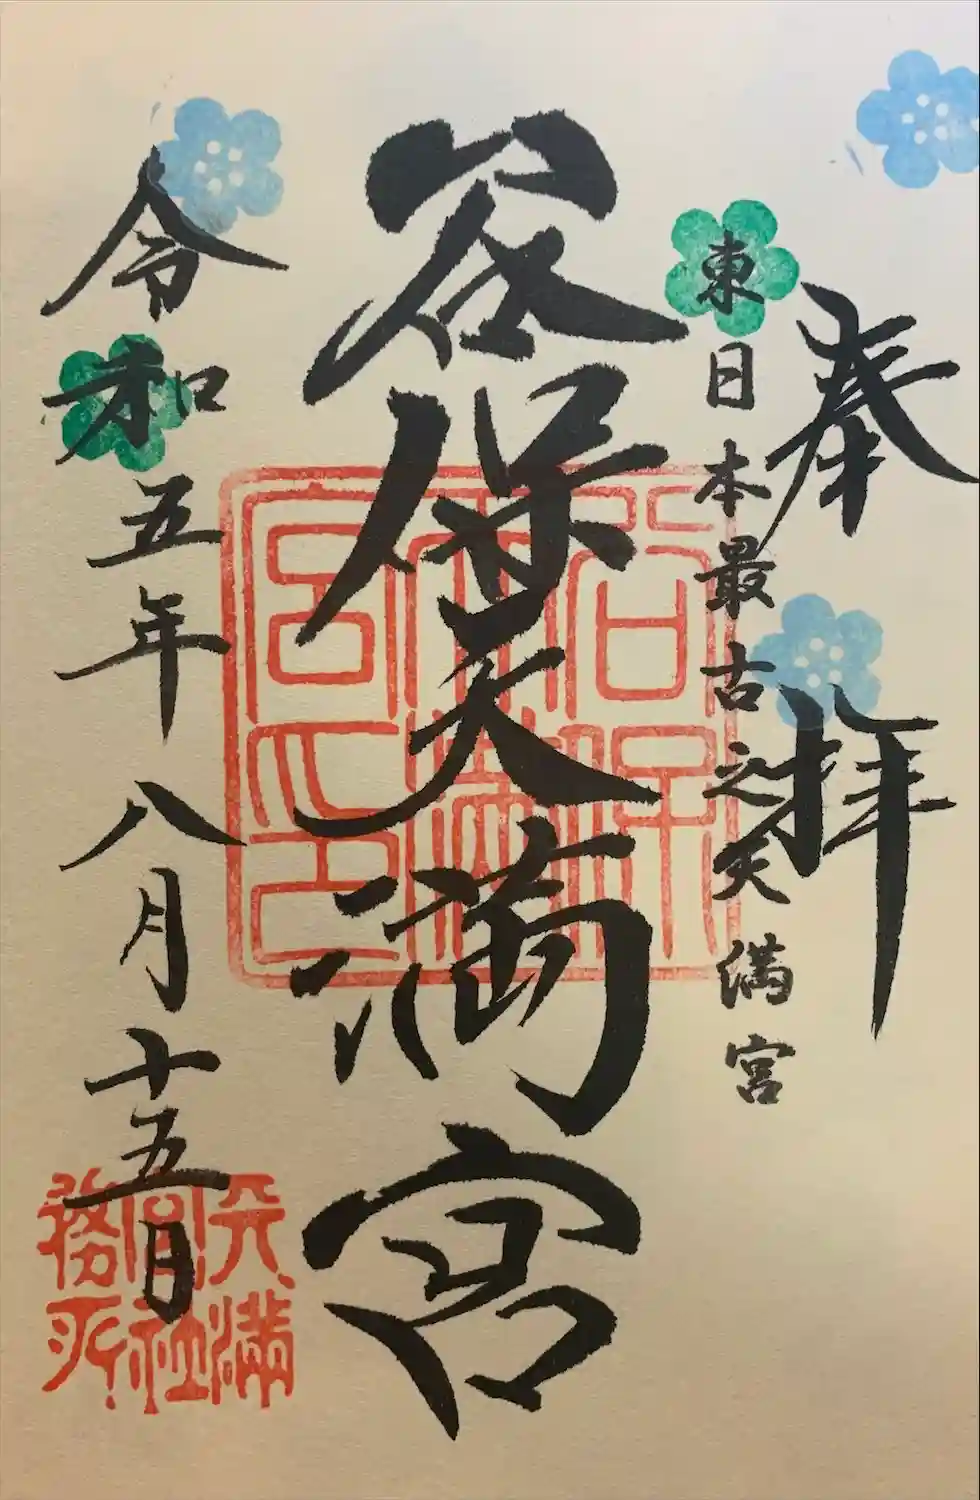 奉拝
東日本最古之天満宮
谷保天満宮
令和五年八月十五日
谷保
天満
宮之印
天満
宮社
務所